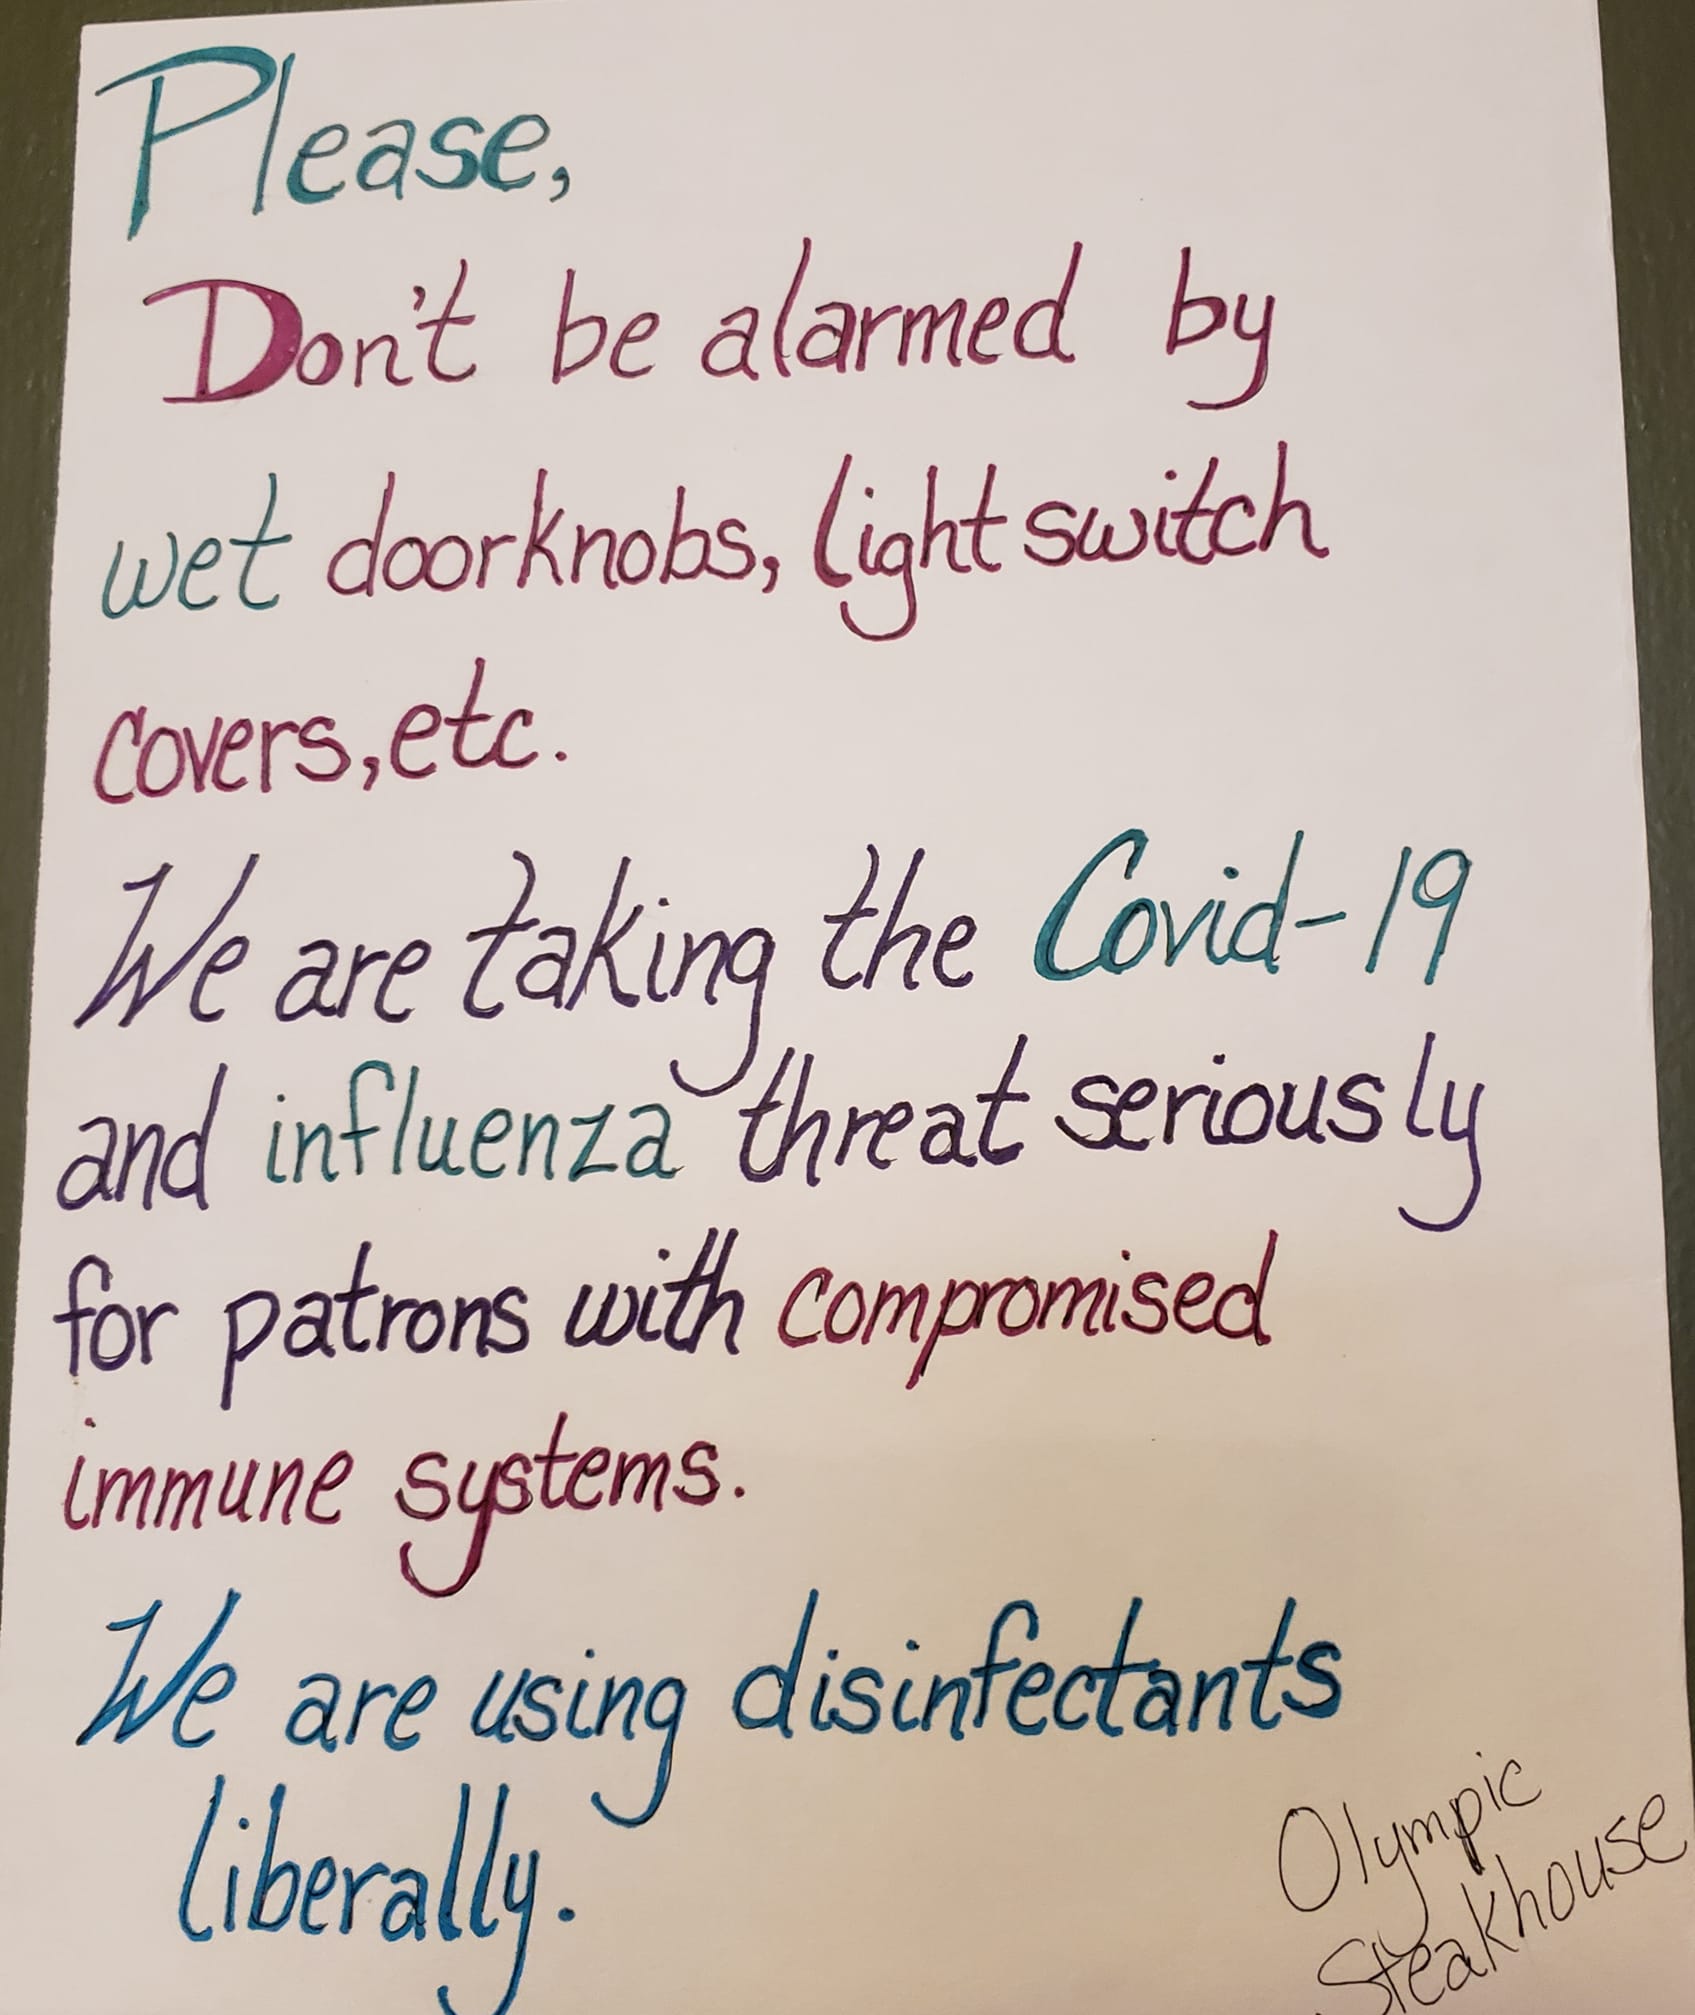 Please,
Don't be alarmed by
wet doorknobs, light switch
covers, etc.
We are taking the Covid-19
and influenza threat seriously
for patrons with compromised
immune systems.
We are using disinfectants
liberally.
Olympic
Steakhouse